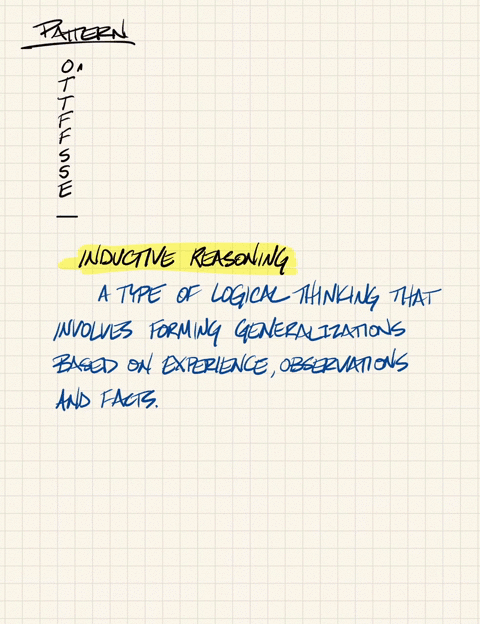 PATTERN
O
T
T
F
F
S
S
E
_
INDUCTIVE REASONING
A TYPE OF LOGICAL THINKING THAT
INVOLVES FORMING GENERALIZATIONS
BASED ON EXPERIENCE, OBSERVATIONS
AND FACTS.